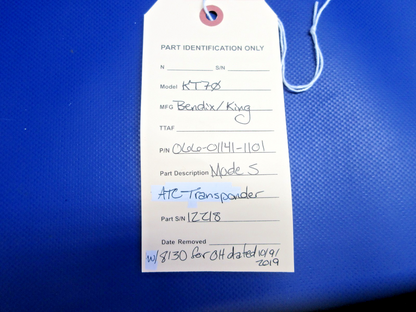 PART IDENTIFICATION ONLY
N ________ S/N ________
Model KT70
MFG Bendix/King
TTAF
P/N 066-01141-1101
Part Description Mode S
ATC-Transponder
Part S/N 12218
Date Removed
w/8130 for OH dated 10/9/
2019